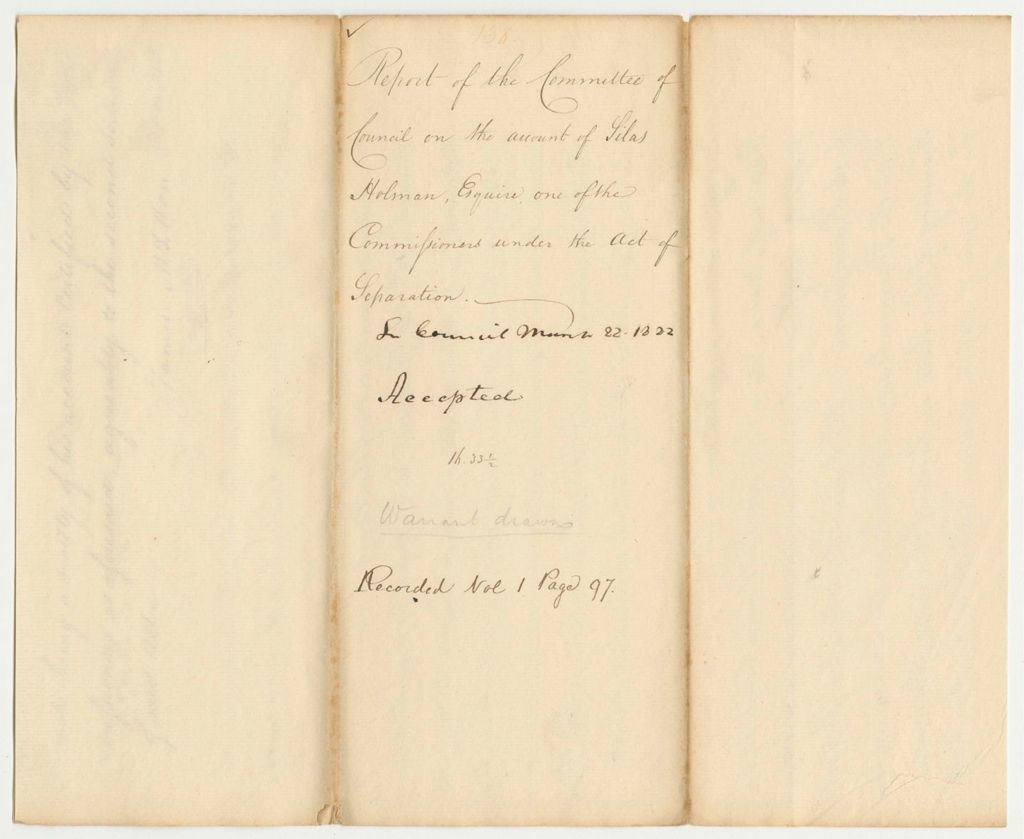 Report of the Committee of
Council on the account of Silas
Holman, Esquire, one of the
Commissioners under the Act of
Separation.
In Council March 22. 1822
Accepted
Warrant drawn
Recorded Vol 1 Page 97.